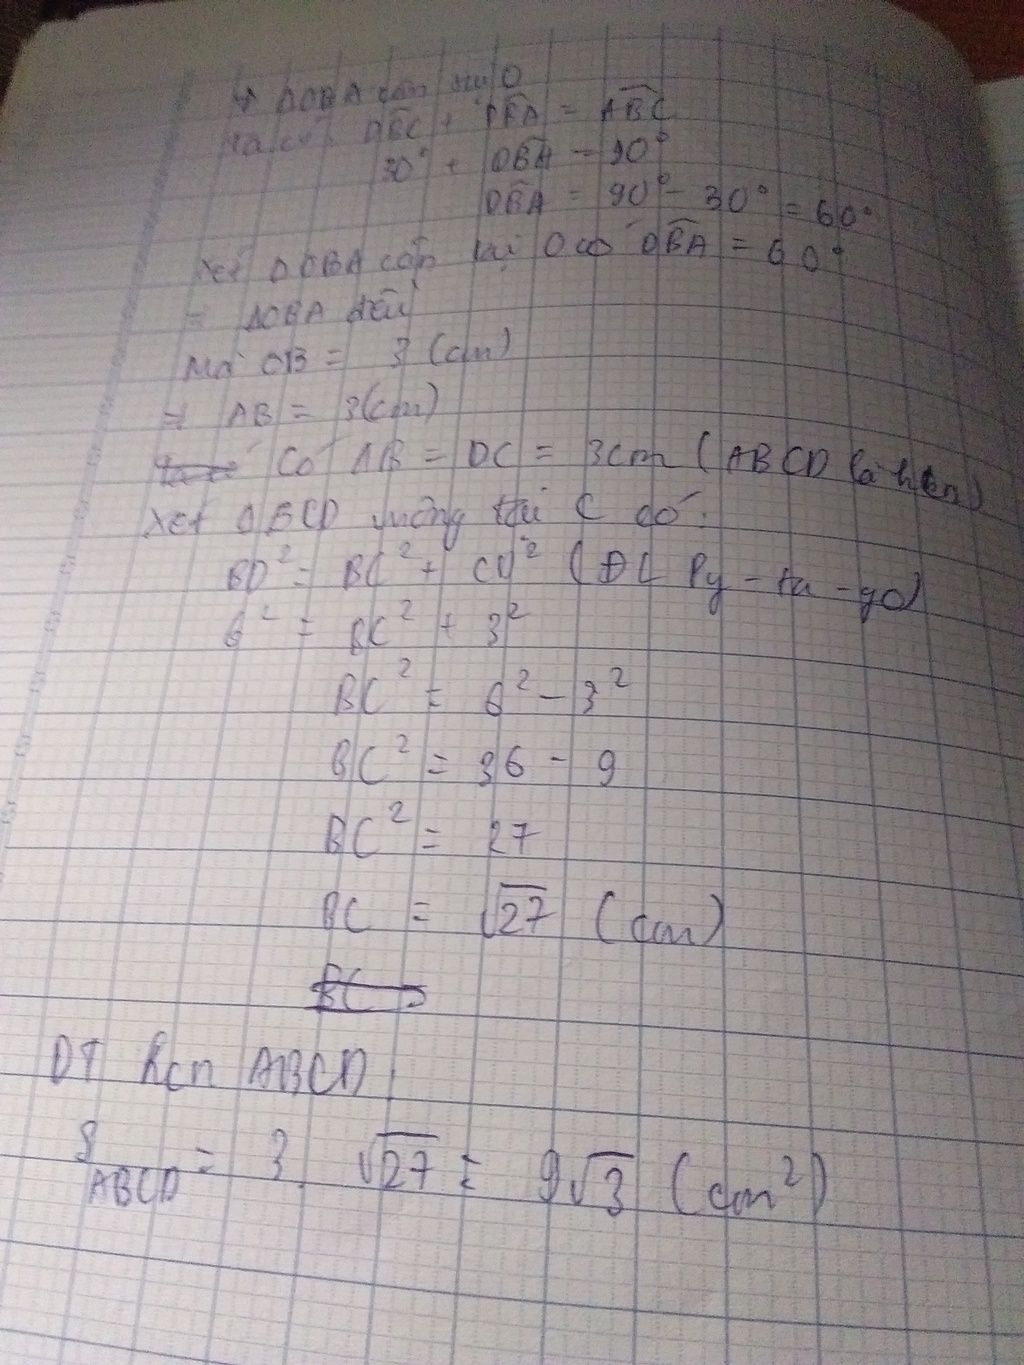 → ΔOBA cân tại O
Ta có: OBC + OBA = ABC
30° + OBA = 90°
OBA = 90° - 30° = 60°
Xét ΔOBA cân tại O có OBA = 60°
= ΔOBA đều
Mà OB = 3 (cm)
⇒ AB = 3 (cm)
Có AB = DC = 3cm (ABCD là hcn)
Xét ΔBCD vuông tại C có:
BD² = BC² + CD² (ĐL Py-ta-go)
6² = BC² + 3²
BC² = 6² - 3²
BC² = 36 - 9
BC² = 27
BC = √27 (cm)
BC
DT hcn ABCD:
S ABCD = 3. √27 = 9√3 (cm²)